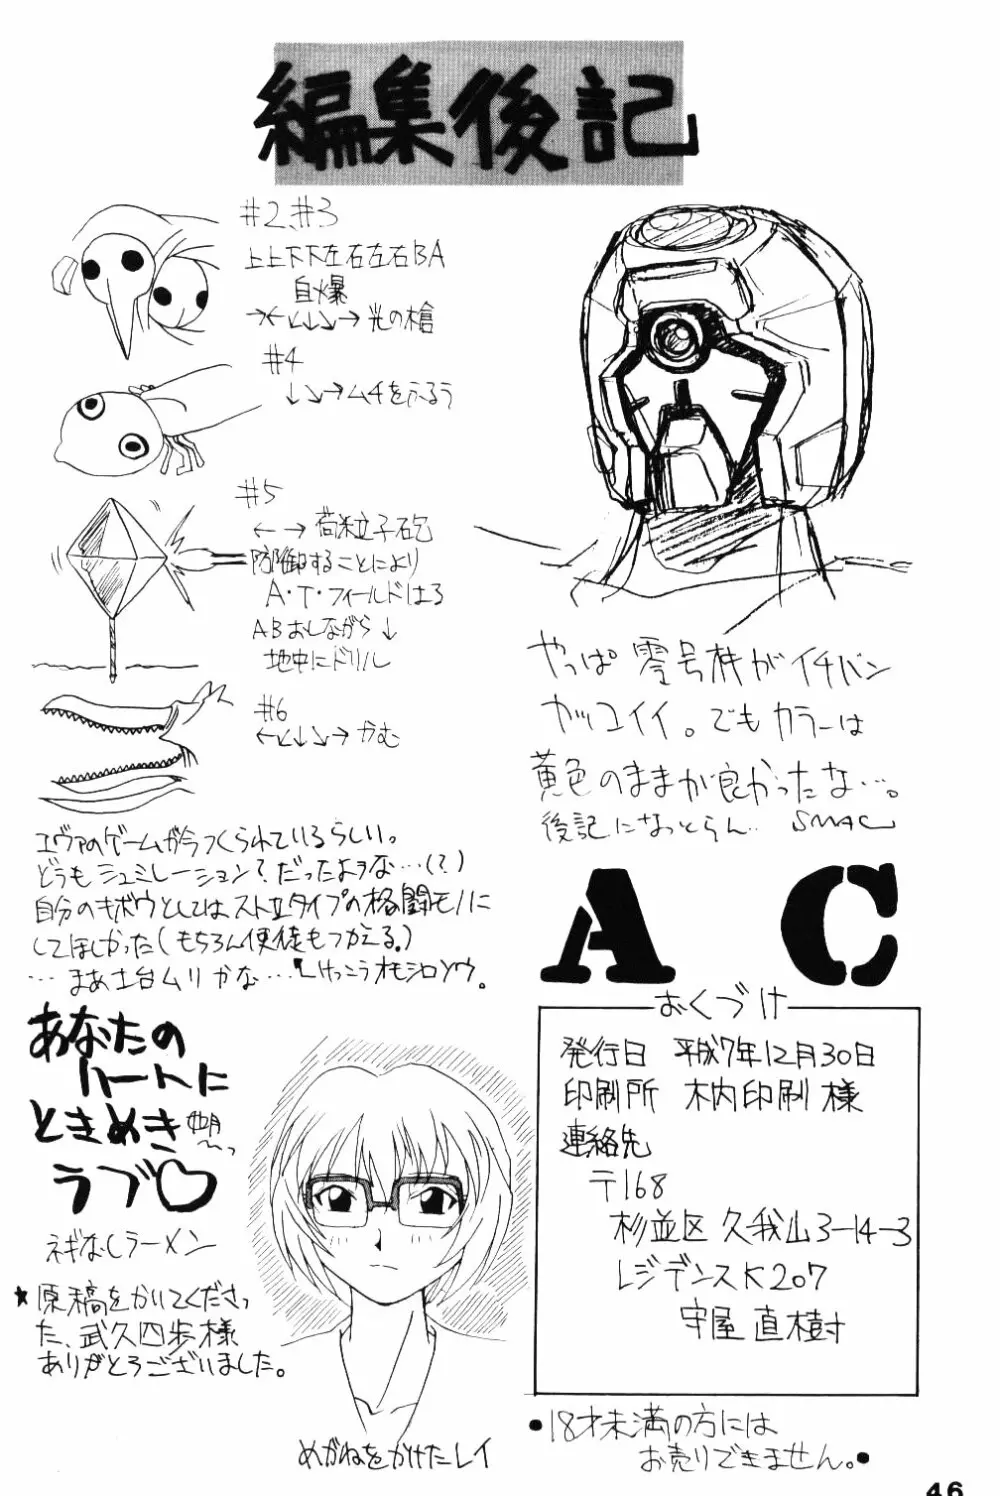 編集後記
#2、#3
上上下下左右左右BA
自爆
→←↙↓↘→光の槍
#4
↓↘→ムチをふるう
#5
←→荷粒子砲
防御することにより
A・T・フィールドはる
ABおしながら↓
地中にドリル
#6
←↙↓↘→かむ
エヴァのゲームが今つくられているらしい。
どうもシュミレーション?だったような…(?)
自分のキボウとしてはストⅡタイプの格闘モノに
してほしかった(もちろん使徒もつかえる。)
…まあ土台ムリかな…けっこうオモシロソウ。
あなたの
ハートに
ときめき
ラブ♡
ネギなしラーメン
★原稿をかいてくださっ
た、武久四歩様
ありがとうございました。
めがねをかけたレイ
やっぱ零号機がイチバン
カッコイイ。でもカラーは
黄色のままが良かったな…。
後記になっとらん‥ SMAC
AC
おくづけ
発行日 平成7年12月30日
印刷所 木内印刷様
連絡先
〒168
杉並区久我山3-14-3
レジデンスK207
守屋直樹
●18才未満の方には
お売りできません。●
46